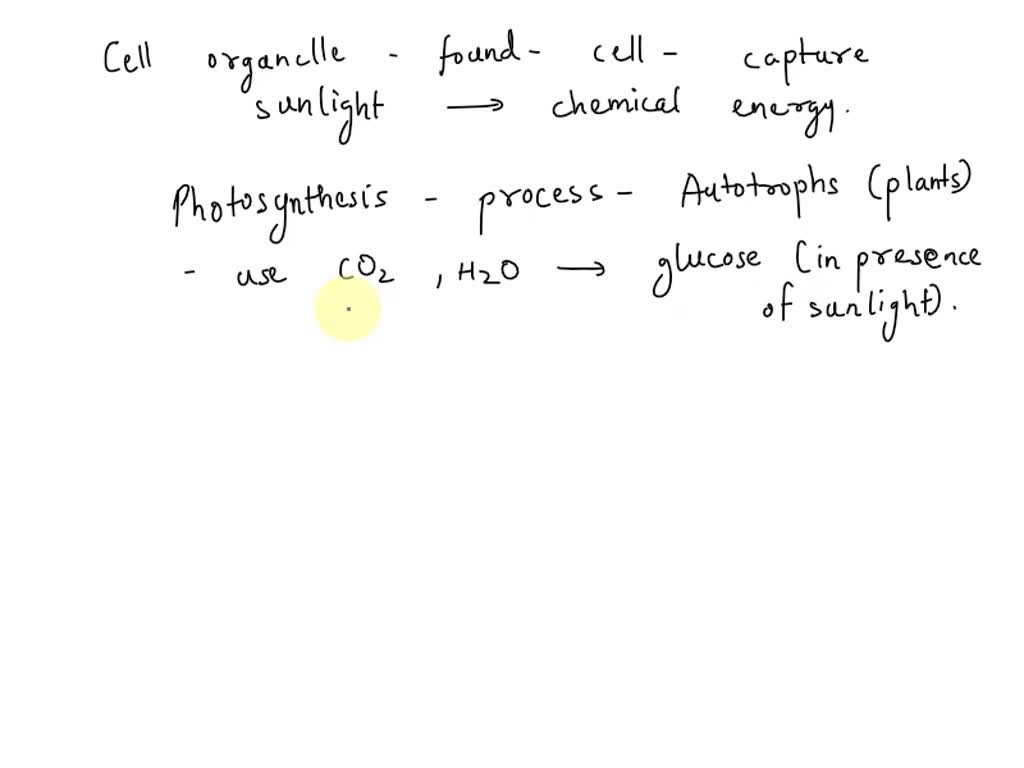 Cell organelle - found - cell - capture
sunlight → chemical energy.
Photosynthesis - process - Autotrophs (plants)
- use CO2 , H2O → glucose (in presence
of sunlight).